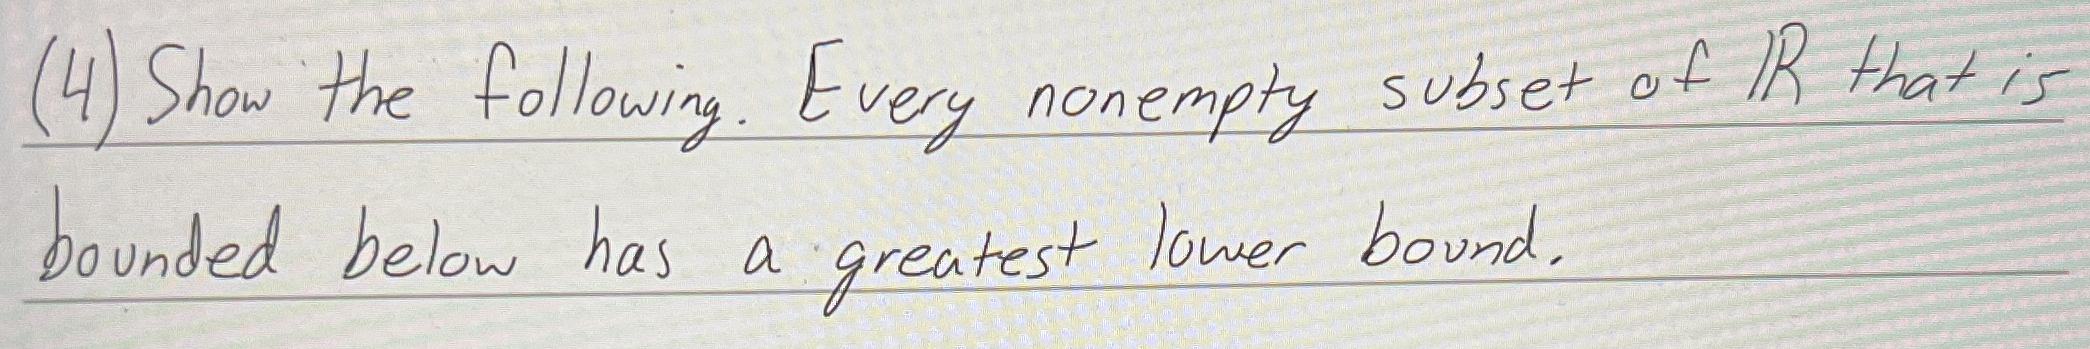 (4) Show the following. Every nonempty subset of ℝ that is
bounded below has a greatest lower bound.